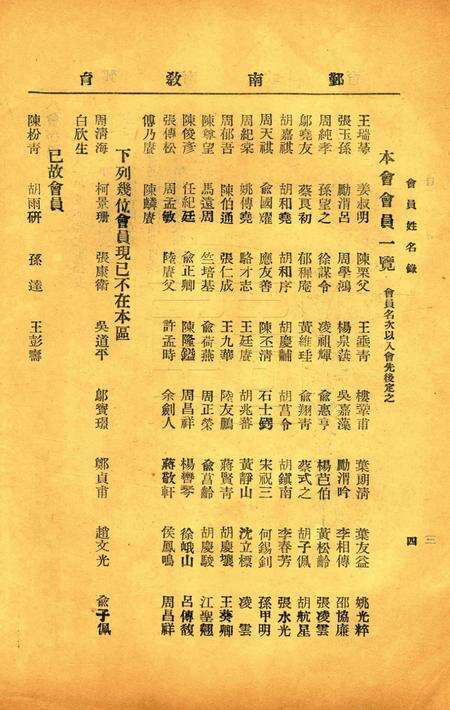 鄞南教育
會員姓名錄 四
本會會員一覽 會員名次以入會先後定之
王瑞琴 姜叔明 陳粟父 王垂青 樓翠甫 葉朗清 葉友益 姚光粹
張玉孫 勵渭呂 周學鴻 楊泉蓀 吳嘉藻 勵渭吟 李相傅 邵協廉
周純孝 孫望之 徐謀令 凌祖輝 俞惠亨 楊芑伯 黃松齡 張凌雲
鄔堯友 蔡良初 郁穉庵 黃維珪 俞翔青 蔡式之 胡子佩 胡航星
胡嘉祺 胡和堯 胡和序 胡慶黼 胡菖令 胡鎮南 李春芳 張水光
周天祺 俞國燿 應友善 陳丕清 石士鍔 宋祝三 何錫釗 孫甲明
周紀棠 姚傅堯 駱才志 王廷賡 胡兆蕃 黃靜山 沈立標 凌雲
周郁吾 陳伯通 張仁成 王九華 陸友鵬 蔣賢青 胡慶瓖 王葵卿
陳尊望 馬遠周 竺培基 俞荷燕 周正榮 俞菖齡 胡慶駿 江聖翹
陳俊彥 任紀廷 俞正卿 陳隆鎰 周昌祥 楊譽琴 徐峨山 呂傅馥
張傅松 周孟敏 陸賡父 許孟時 余劍人 蔣敬軒 侯鳳鳴 周昌祥
傅乃賡 陳麟賡
下列幾位會員現已不在本區
周清海 柯景珊 張康衛 吳道平 鄔寶璟 鄭貞甫 趙文光 俞子佩
白欣生
已故會員
陳松青 胡雨研 孫達 王彭壽